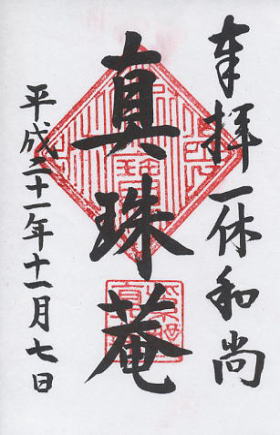 奉拝一休和尚
真珠庵
平成二十一年十一月七日